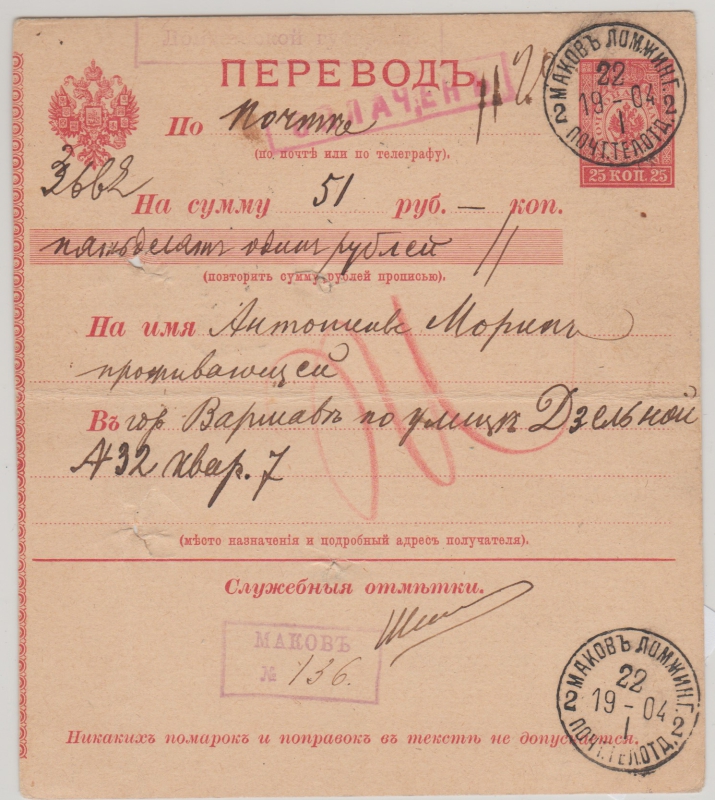 ПЕРЕВОДЪ
ОПЛАЧЕНЪ
По Почтѣ
(по почтѣ или по телеграфу).
25 КОП. 25
МАКОВЪ ЛОМЖИН.Г.
22
2 19-04 2
I
ПОЧТ.ТЕЛ.ОТД.
На сумму 51 руб. — коп.
пятьдесятъ одинъ рублей
(повторить сумму рублей прописью).
На имя
проживающей
Въ гор Варшавѣ по улицѣ Дзельной
№ 32 квар. 7
(мѣсто назначенія и подробный адресъ получателя).
Служебныя отмѣтки.
МАКОВЪ
№ 136.
МАКОВЪ ЛОМЖИН.Г.
22
2 19-04 2
I
ПОЧТ.ТЕЛ.ОТД.
Никакихъ помарокъ и поправокъ въ текстѣ не допускается.